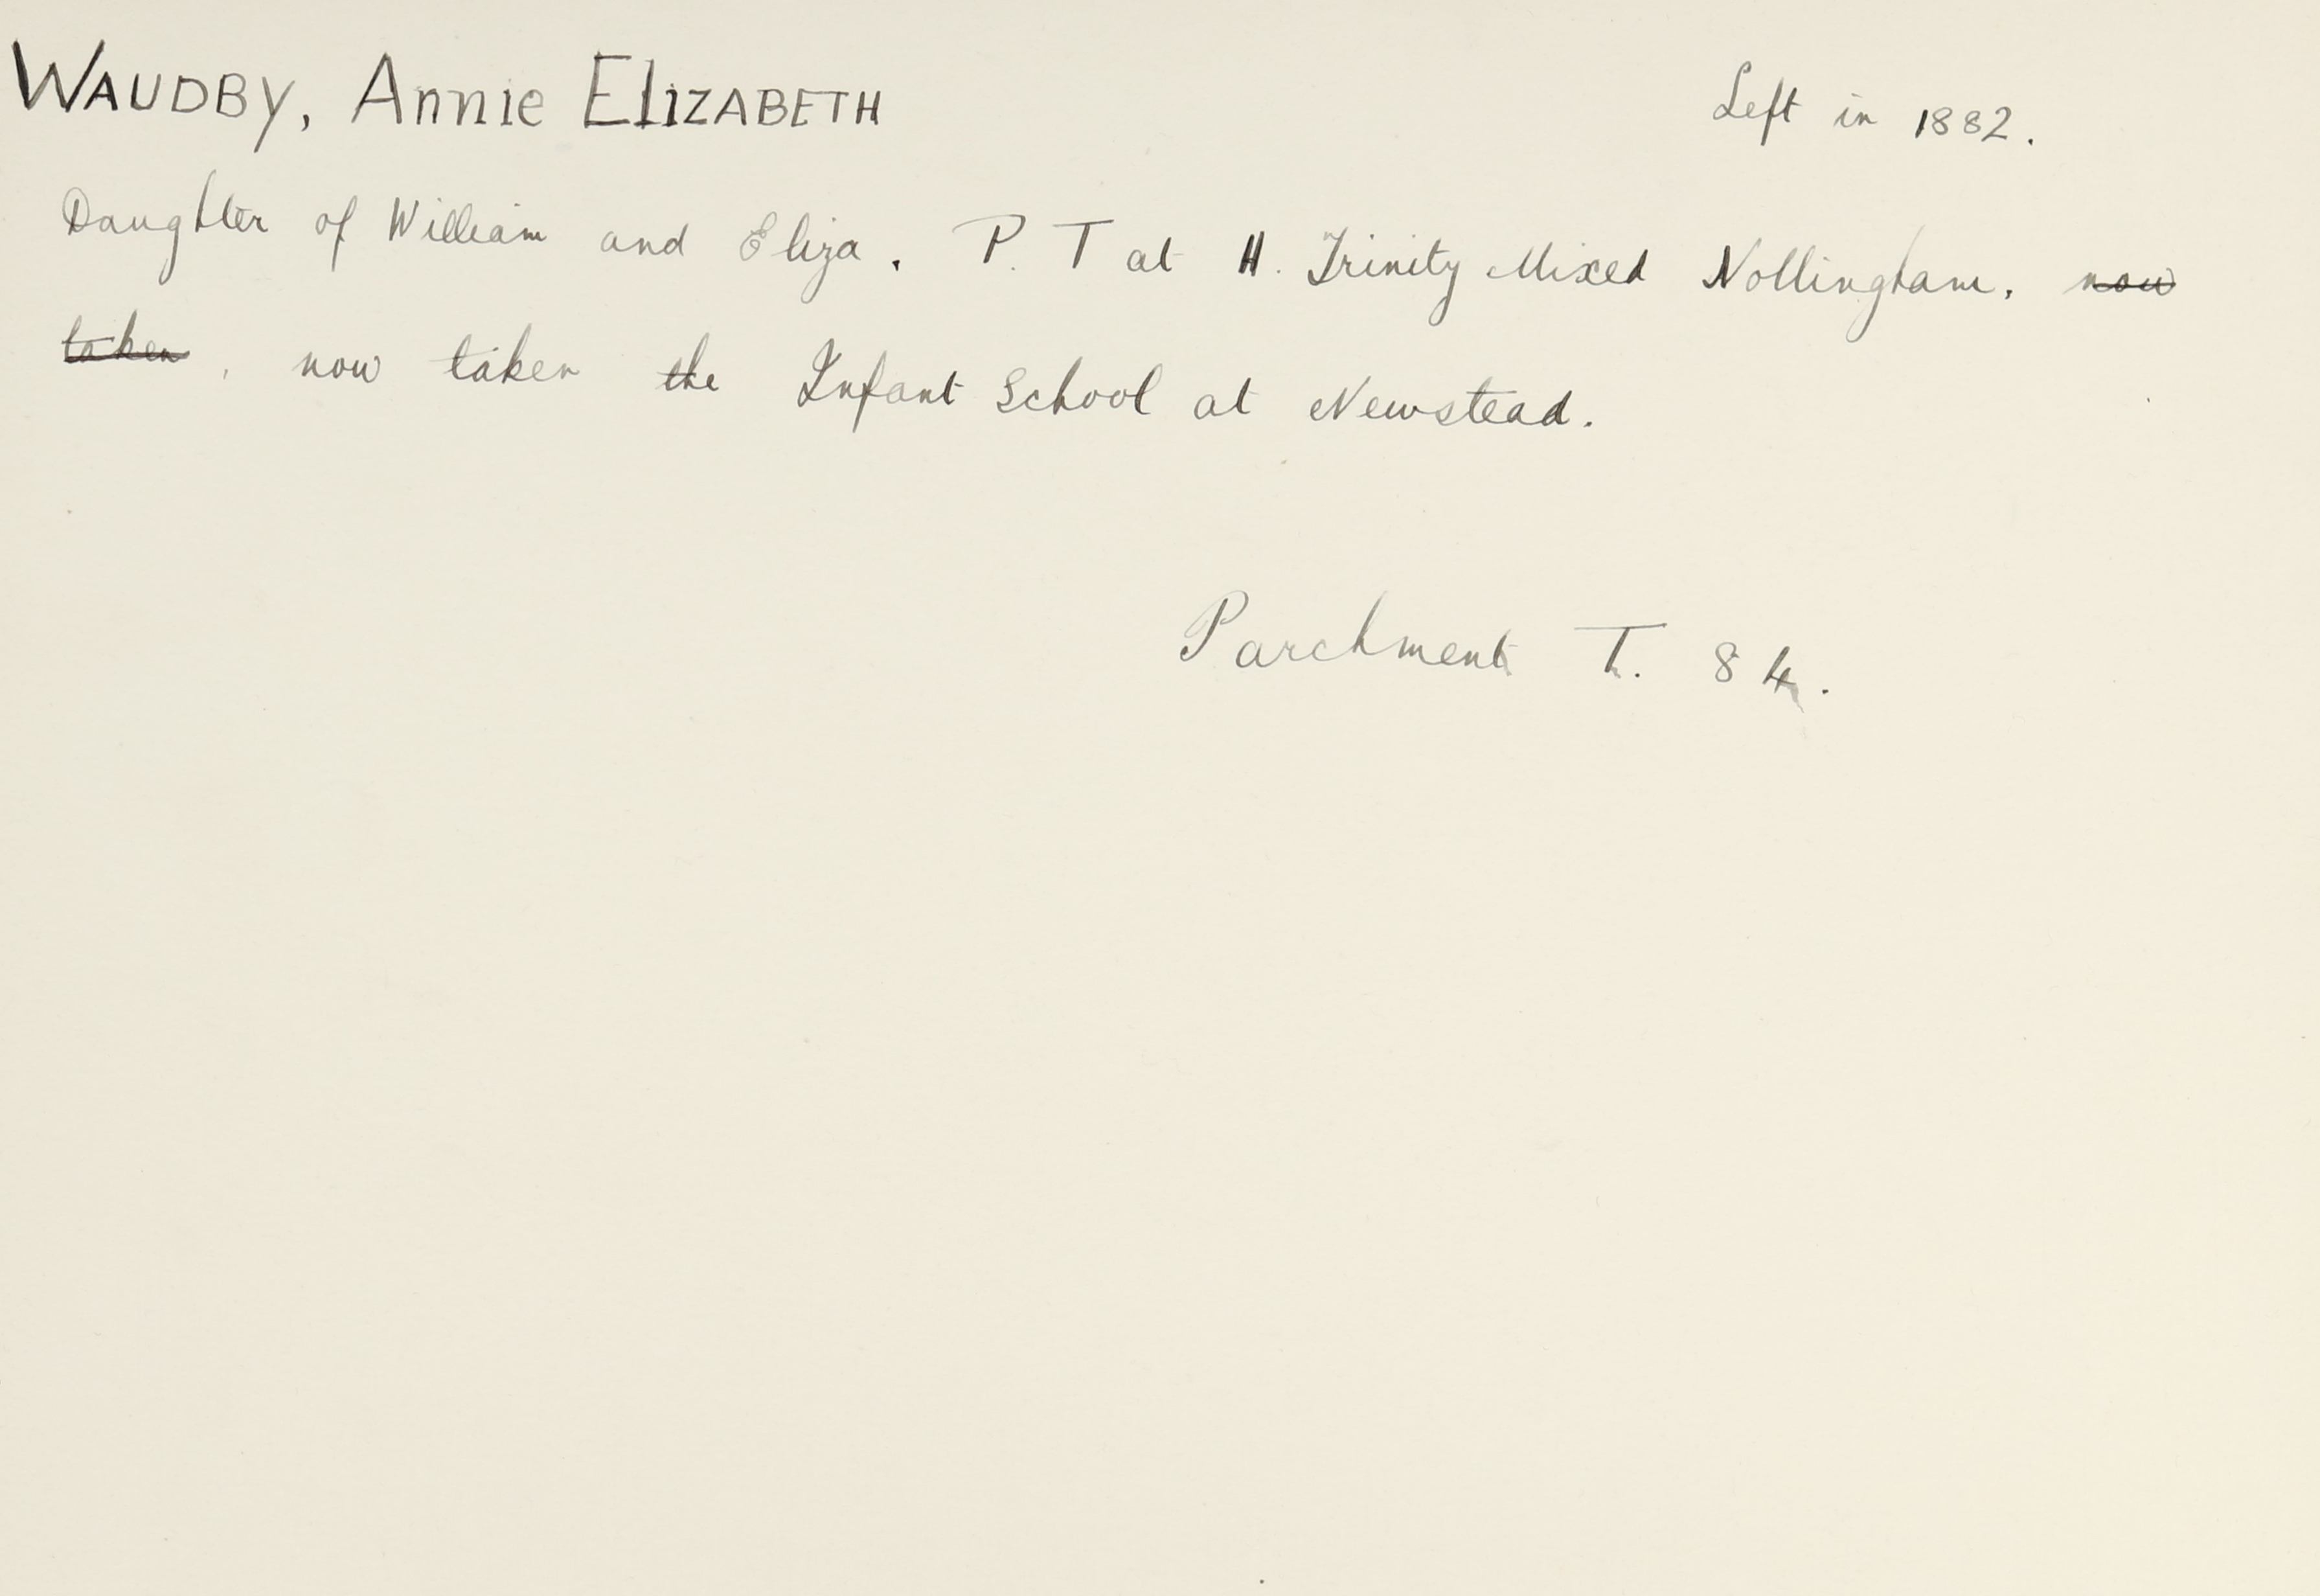 WAUDBY, Annie ELIZABETH Left in 1882.
Daughter of William and Eliza. P. T at H. Trinity Mixed Nottingham, now
taken, now taken the Infant School at Newstead.
Parchment T. 84.